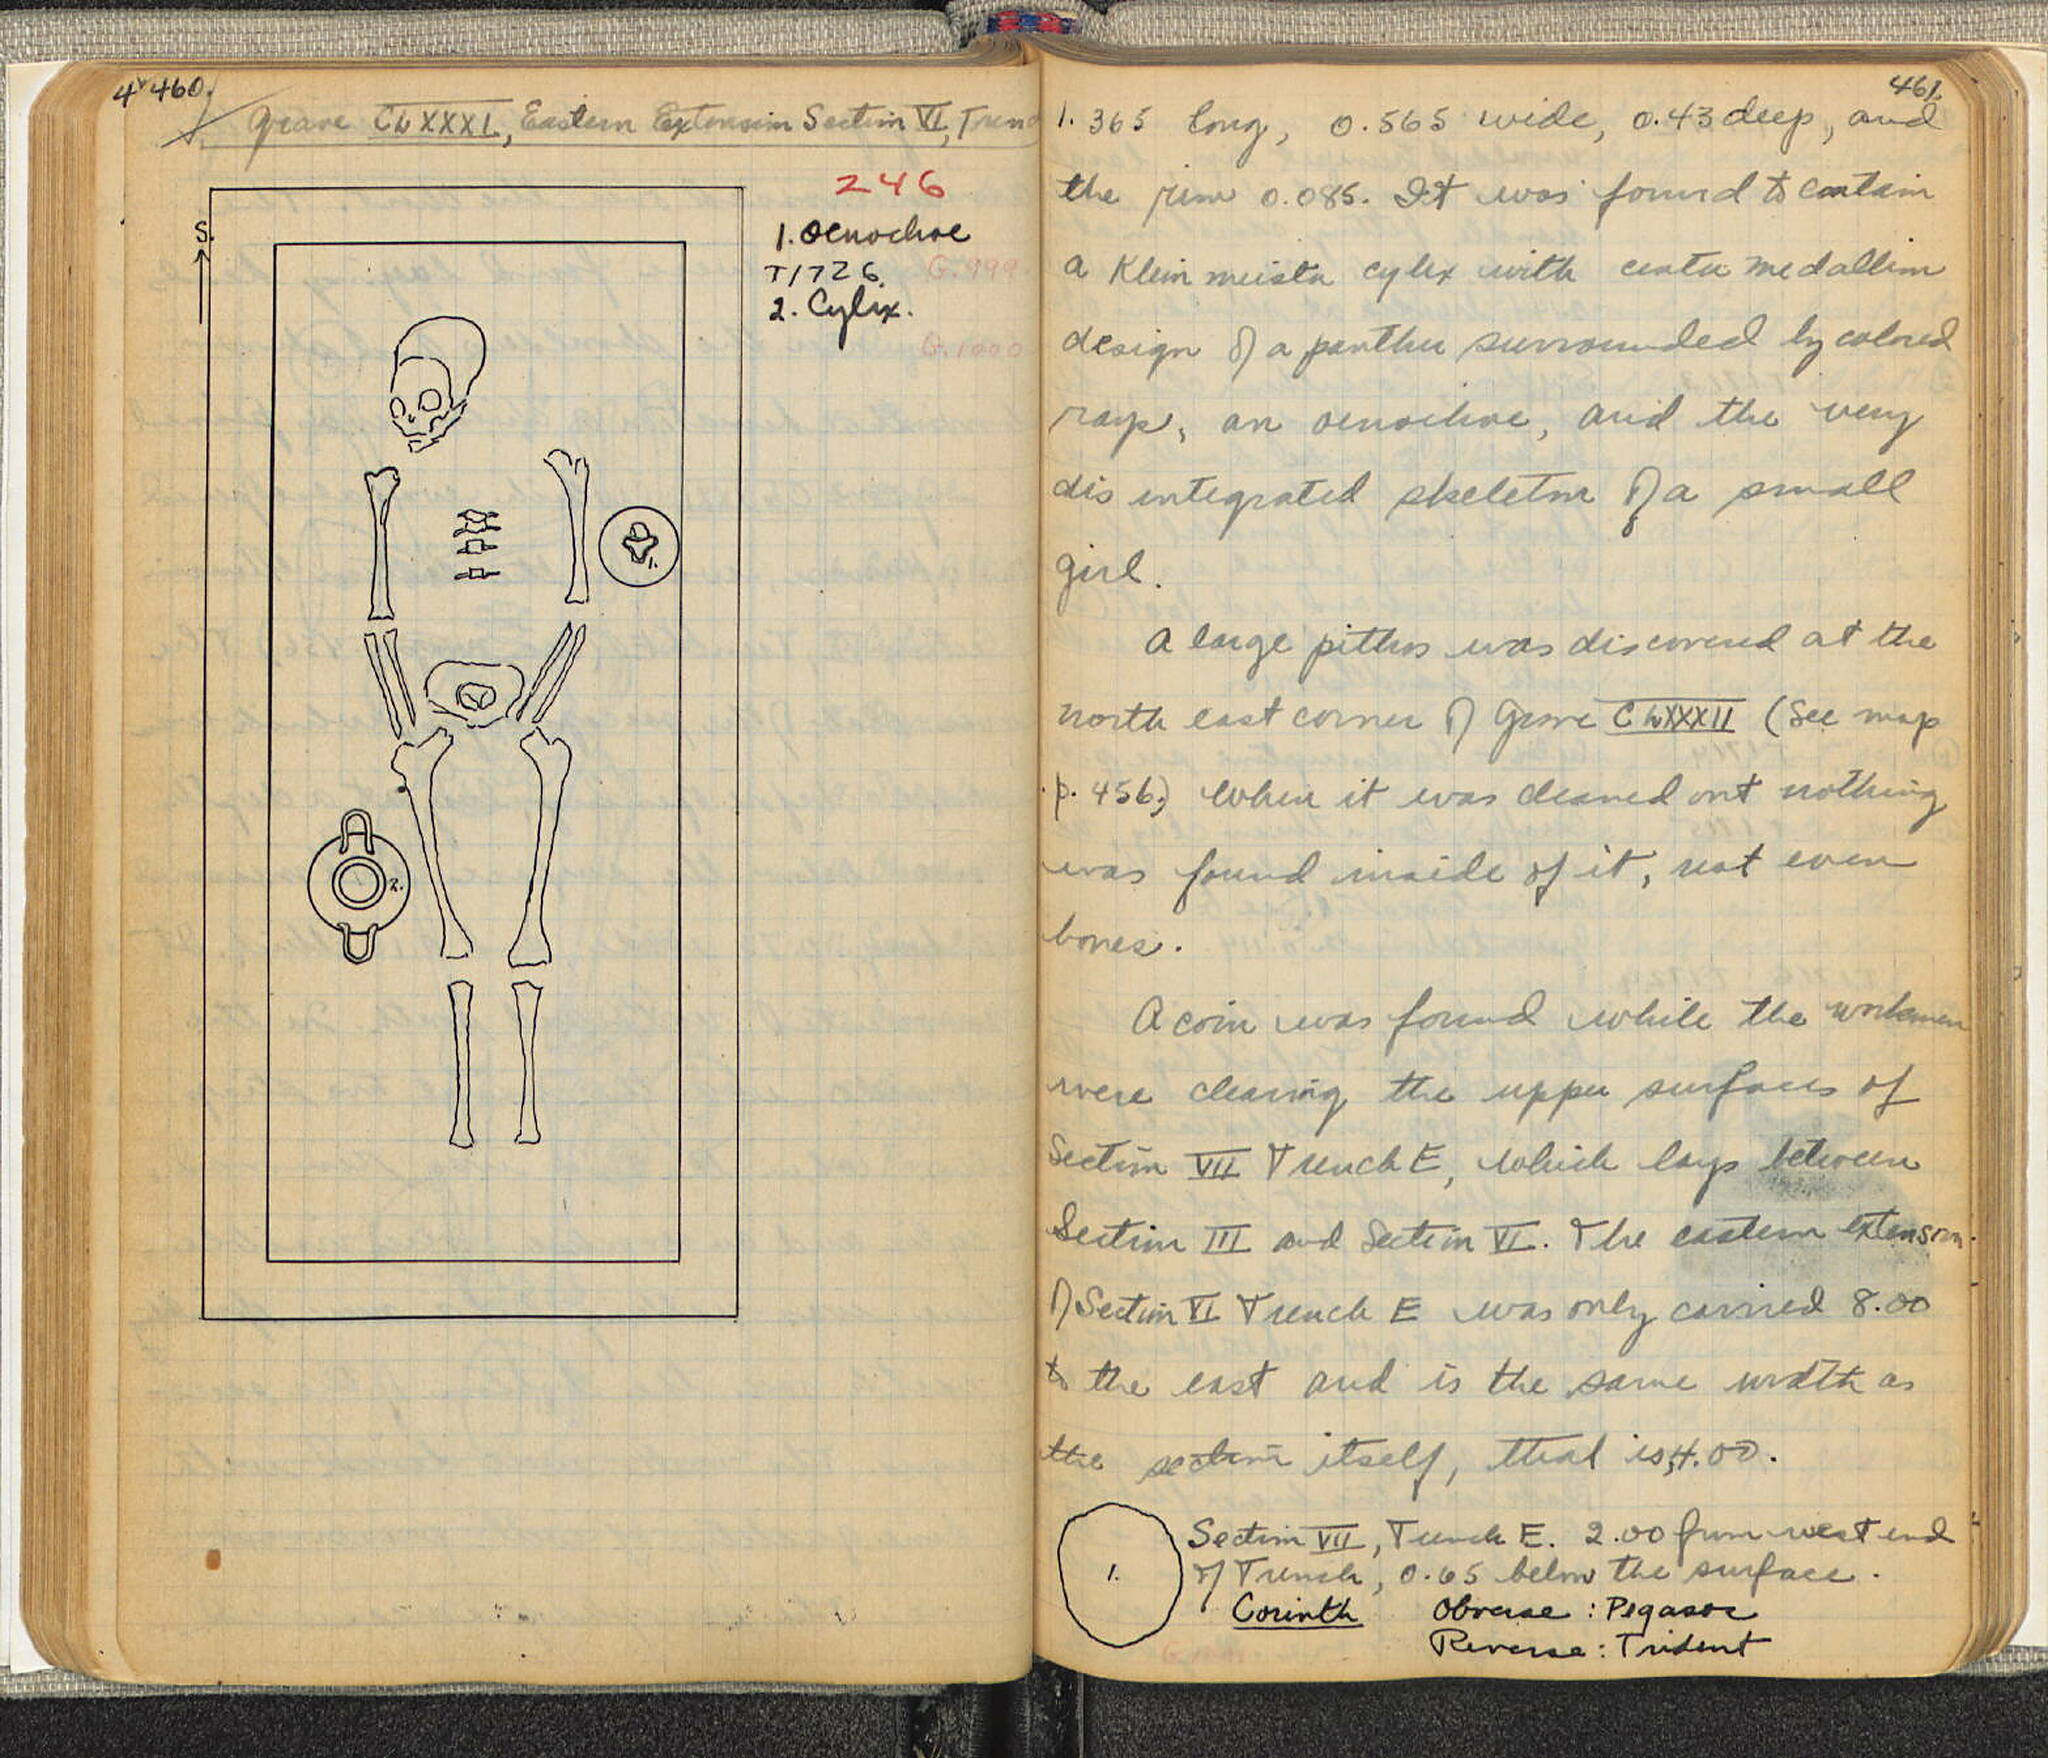 4v 460.
Grave CLXXXI, Eastern Extension Section VI, Trenc
246
S.
1. Oenochoe
T1726 G.999.
2. Cylix.
G.1000
1.
2.
461.
1.365 long, 0.565 wide, 0.43 deep, and
the rim 0.085. It was found to contain
a Kleinmeister cylix with center medallion
design of a panther surrounded by colored
rays, an oenochoe, and the very
disintegrated skeleton of a small
girl.
A large pithos was discovered at the
north east corner of Grave CLXXXII (See map
p. 456.) When it was cleaned out nothing
was found inside of it, not even
bones.
A coin was found while the workmen
were clearing the upper surfaces of
Section VII Trench E, which lays between
Section III and Section VI. The eastern extension
of Section VI Trench E was only carried 8.00
to the east and is the same width as
the section itself, that is, 4.00.
1.
Section VII, Trench E. 2.00 from west end
of Trench, 0.65 below the surface.
Corinth Obverse : Pegasos
Reverse : Trident